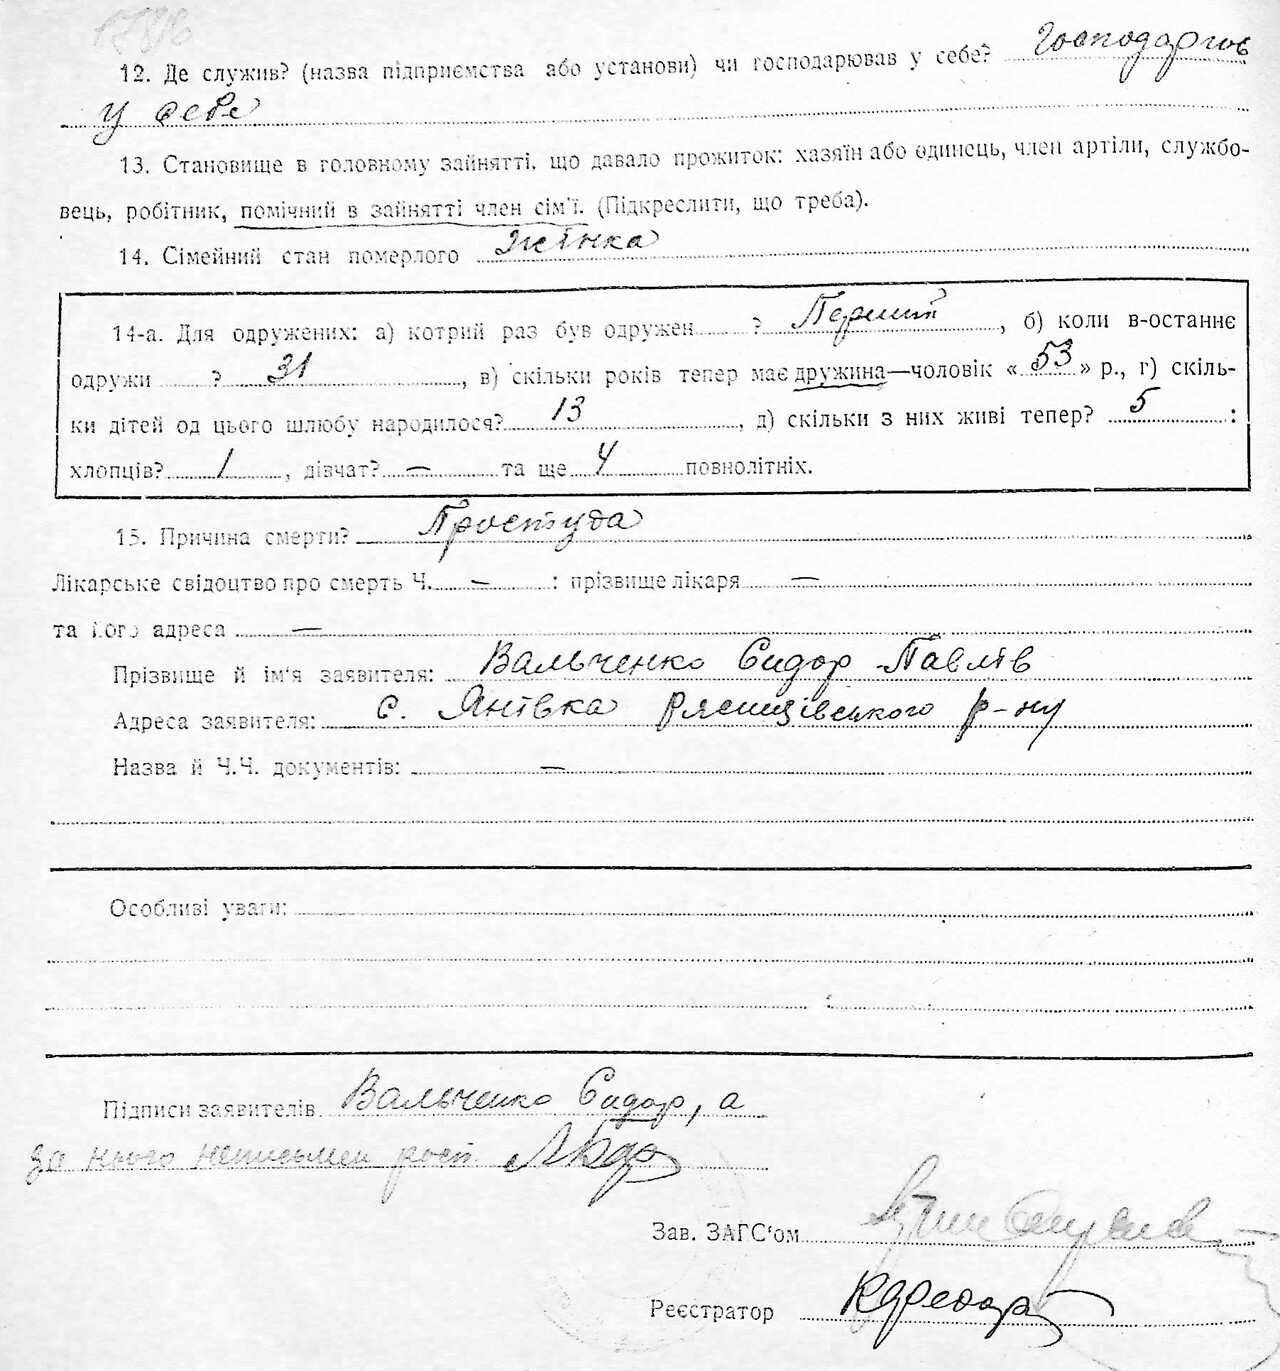 12. Де служив? (назва підприємства або установи) чи господарював у себе? Господарюв
у себе
13. Становище в головному зайнятті, що давало прожиток: хазяїн або одинець, член артіли, службо-
вець, робітник, помічний в зайнятті член сім'ї. (Підкреслити, що треба).
14. Сімейний стан померлого Жінка
14-а. Для одружених: а) котрий раз був одружен ? Перший, б) коли в-останнє
одружи ? 31, в) скільки років тепер має дружина—чоловік « 53 » р., г) скіль-
ки дітей од цього шлюбу народилося? 13, д) скільки з них живі тепер? 5 :
хлопців? 1, дівчат? — та ще 4 повнолітніх.
15. Причина смерти? Простуда
Лікарське свідоцтво про смерть Ч. — : прізвище лікаря —
та його адреса —
Прізвище й ім'я заявителя: Вальченко Сидор Павлів
Адреса заявителя: с. Янівка Рясницівського р-ну
Назва й Ч.Ч. документів: —
Особливі уваги:
Підписи заявителів Вальченко Сидор, а
за нього неписьмен розп.
Зав. ЗАГС'ом
Реєстратор